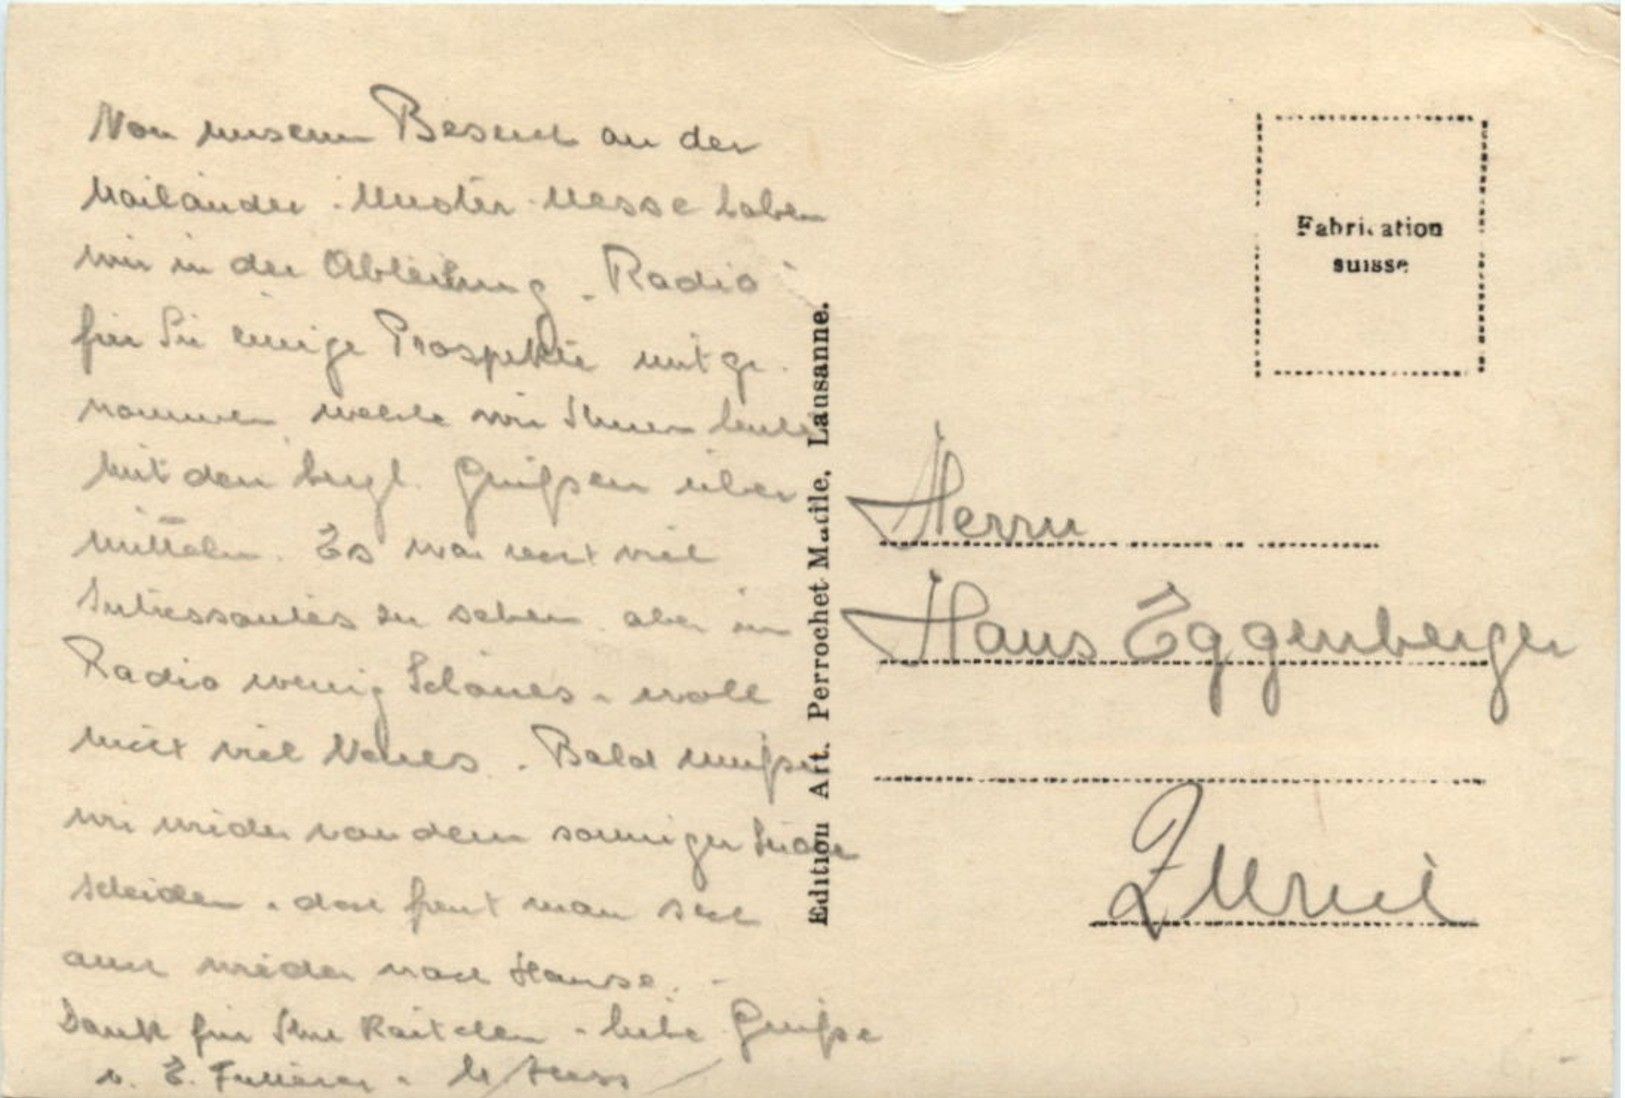 Von unserm Besuch an der
Mailänder-Muster-Messe haben
wir in der Abteilung - Radio
für Sie einige Prospekte mitge-
nommen, welche wir Ihnen heute
mit den bezgl. Grüßen über
mitteln. Es war recht viel
Intressantes zu sehen, aber im
Radio wenig Schönes - wohl
nicht viel Neues. - Bald müßen
wir wieder von dem sonnigen
scheiden - doch freut man sich
auch wieder nach Hause. -
Dank für Ihre Kärtchen - liebe Grüße
v. E.
Edition Art. Perrochet-Matile, Lausanne.
Fabrication
suisse
Herrn
Hans Eggenberger
Zürich